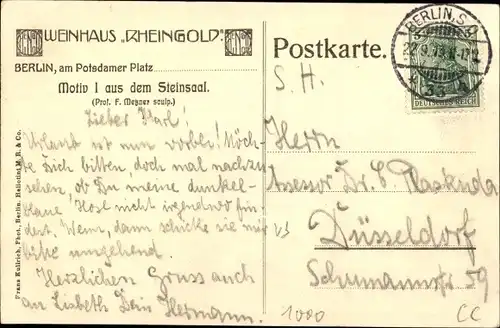 WEINHAUS "RHEINGOLD"
BERLIN, am Potsdamer Platz
Motiv I aus dem Steinsaal.
(Prof. F. Metzner sculp.)
Lieber Karl!
Urlaub ist nun vorbei! Möch-
te Dich bitten, doch mal nachzu-
sehen, ob Du meine dunkel-
blaue Hose nicht irgendwo fin-
dest. Wenn, dann schicke sie mir
bitte umgehend.
Herzlichen Gruss auch
an Lisbeth Dein Hermann.
Franz Kullrich, Phot., Berlin. Heliotint M. B. & Co.
Postkarte.
BERLIN, S.W.
22.9.13.
33
DEUTSCHES REICH
S. H.
Herrn
Assessor Dr. C Plaskuda
Düsseldorf
Schumannstr 59
1000
CC